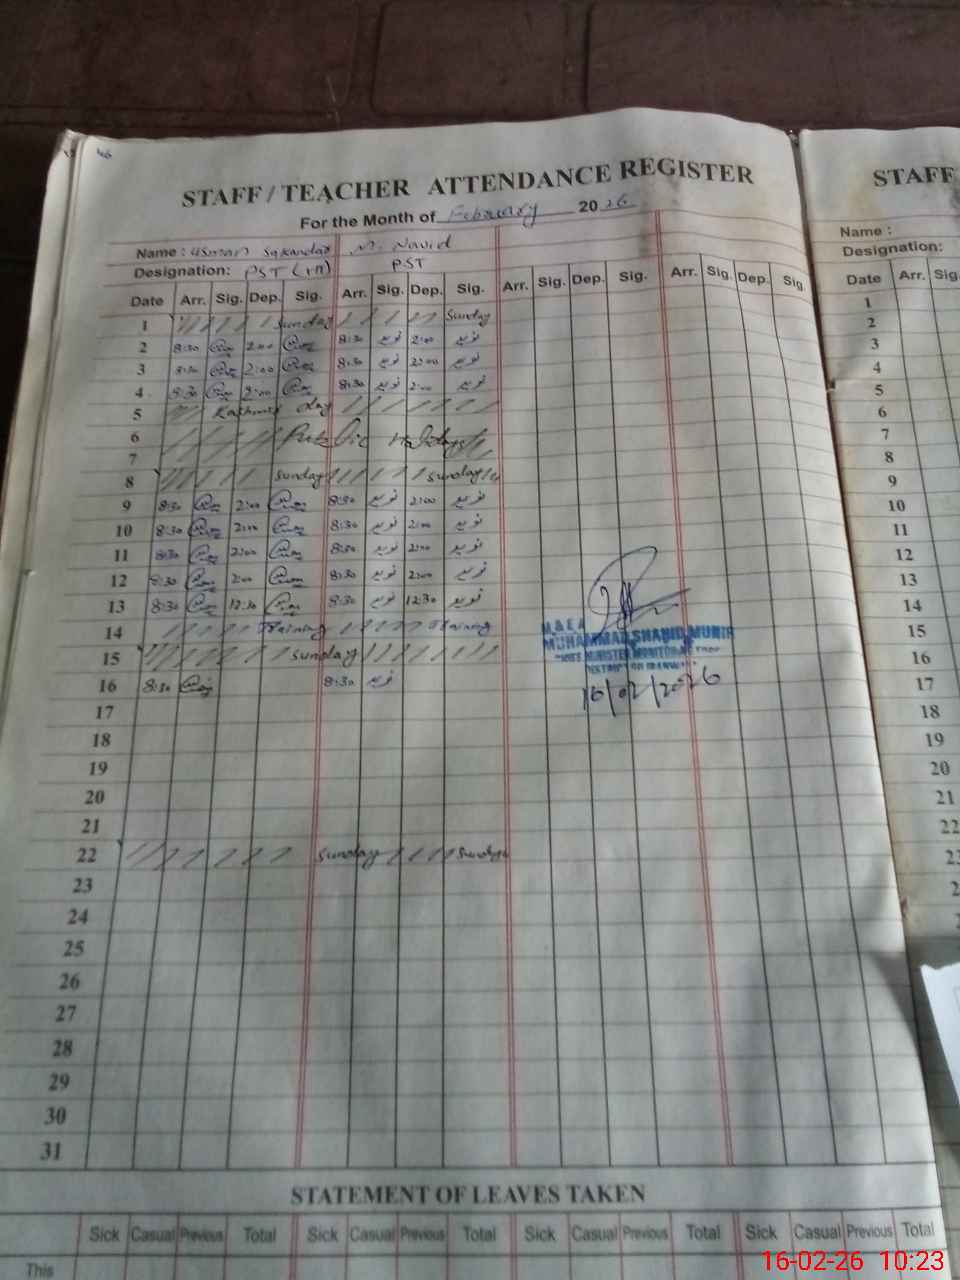 46
STAFF / TEACHER ATTENDANCE REGISTER
For the Month of February 2026
Name : usman Sqkandar M. Navid
Designation: PST (HT) PST
Date Arr. Sig. Dep. Sig. Arr. Sig. Dep. Sig. Arr. Sig. Dep. Sig. Arr. Sig. Dep. Sig.
1 Sunday Sunday
2 8:30 2:00 8:30 نوید 2:00 نوید
3 8:30 2:00 8:30 نوید 2:00 نوید
4 8:30 2:00 8:30 نوید 2:00 نوید
5 Kashmir day
6 Public Holidays
7
8 Sunday Sunday
9 8:30 2:00 8:30 نوید 2:00 نوید
10 8:30 2:00 8:30 نوید 2:00 نوید
11 8:30 2:00 8:30 نوید 2:00 نوید
12 8:30 2:00 8:30 نوید 2:00 نوید
13 8:30 12:30 8:30 نوید 12:30 نوید
14 Training Training
15 Sunday
16 8:30 8:30 نوید
M & E A
MUHAMMAD SHAHID MUNIR
16/02/2026
17
18
19
20
21
22 Sunday Sunday
23
24
25
26
27
28
29
30
31
STATEMENT OF LEAVES TAKEN
Sick Casual Previous Total Sick Casual Previous Total Sick Casual Previous Total Sick Casual Previous Total
This
STAFF
Name :
Designation:
Date Arr. Sig.
1
2
3
4
5
6
7
8
9
10
11
12
13
14
15
16
17
18
19
20
21
22
16-02-26 10:23